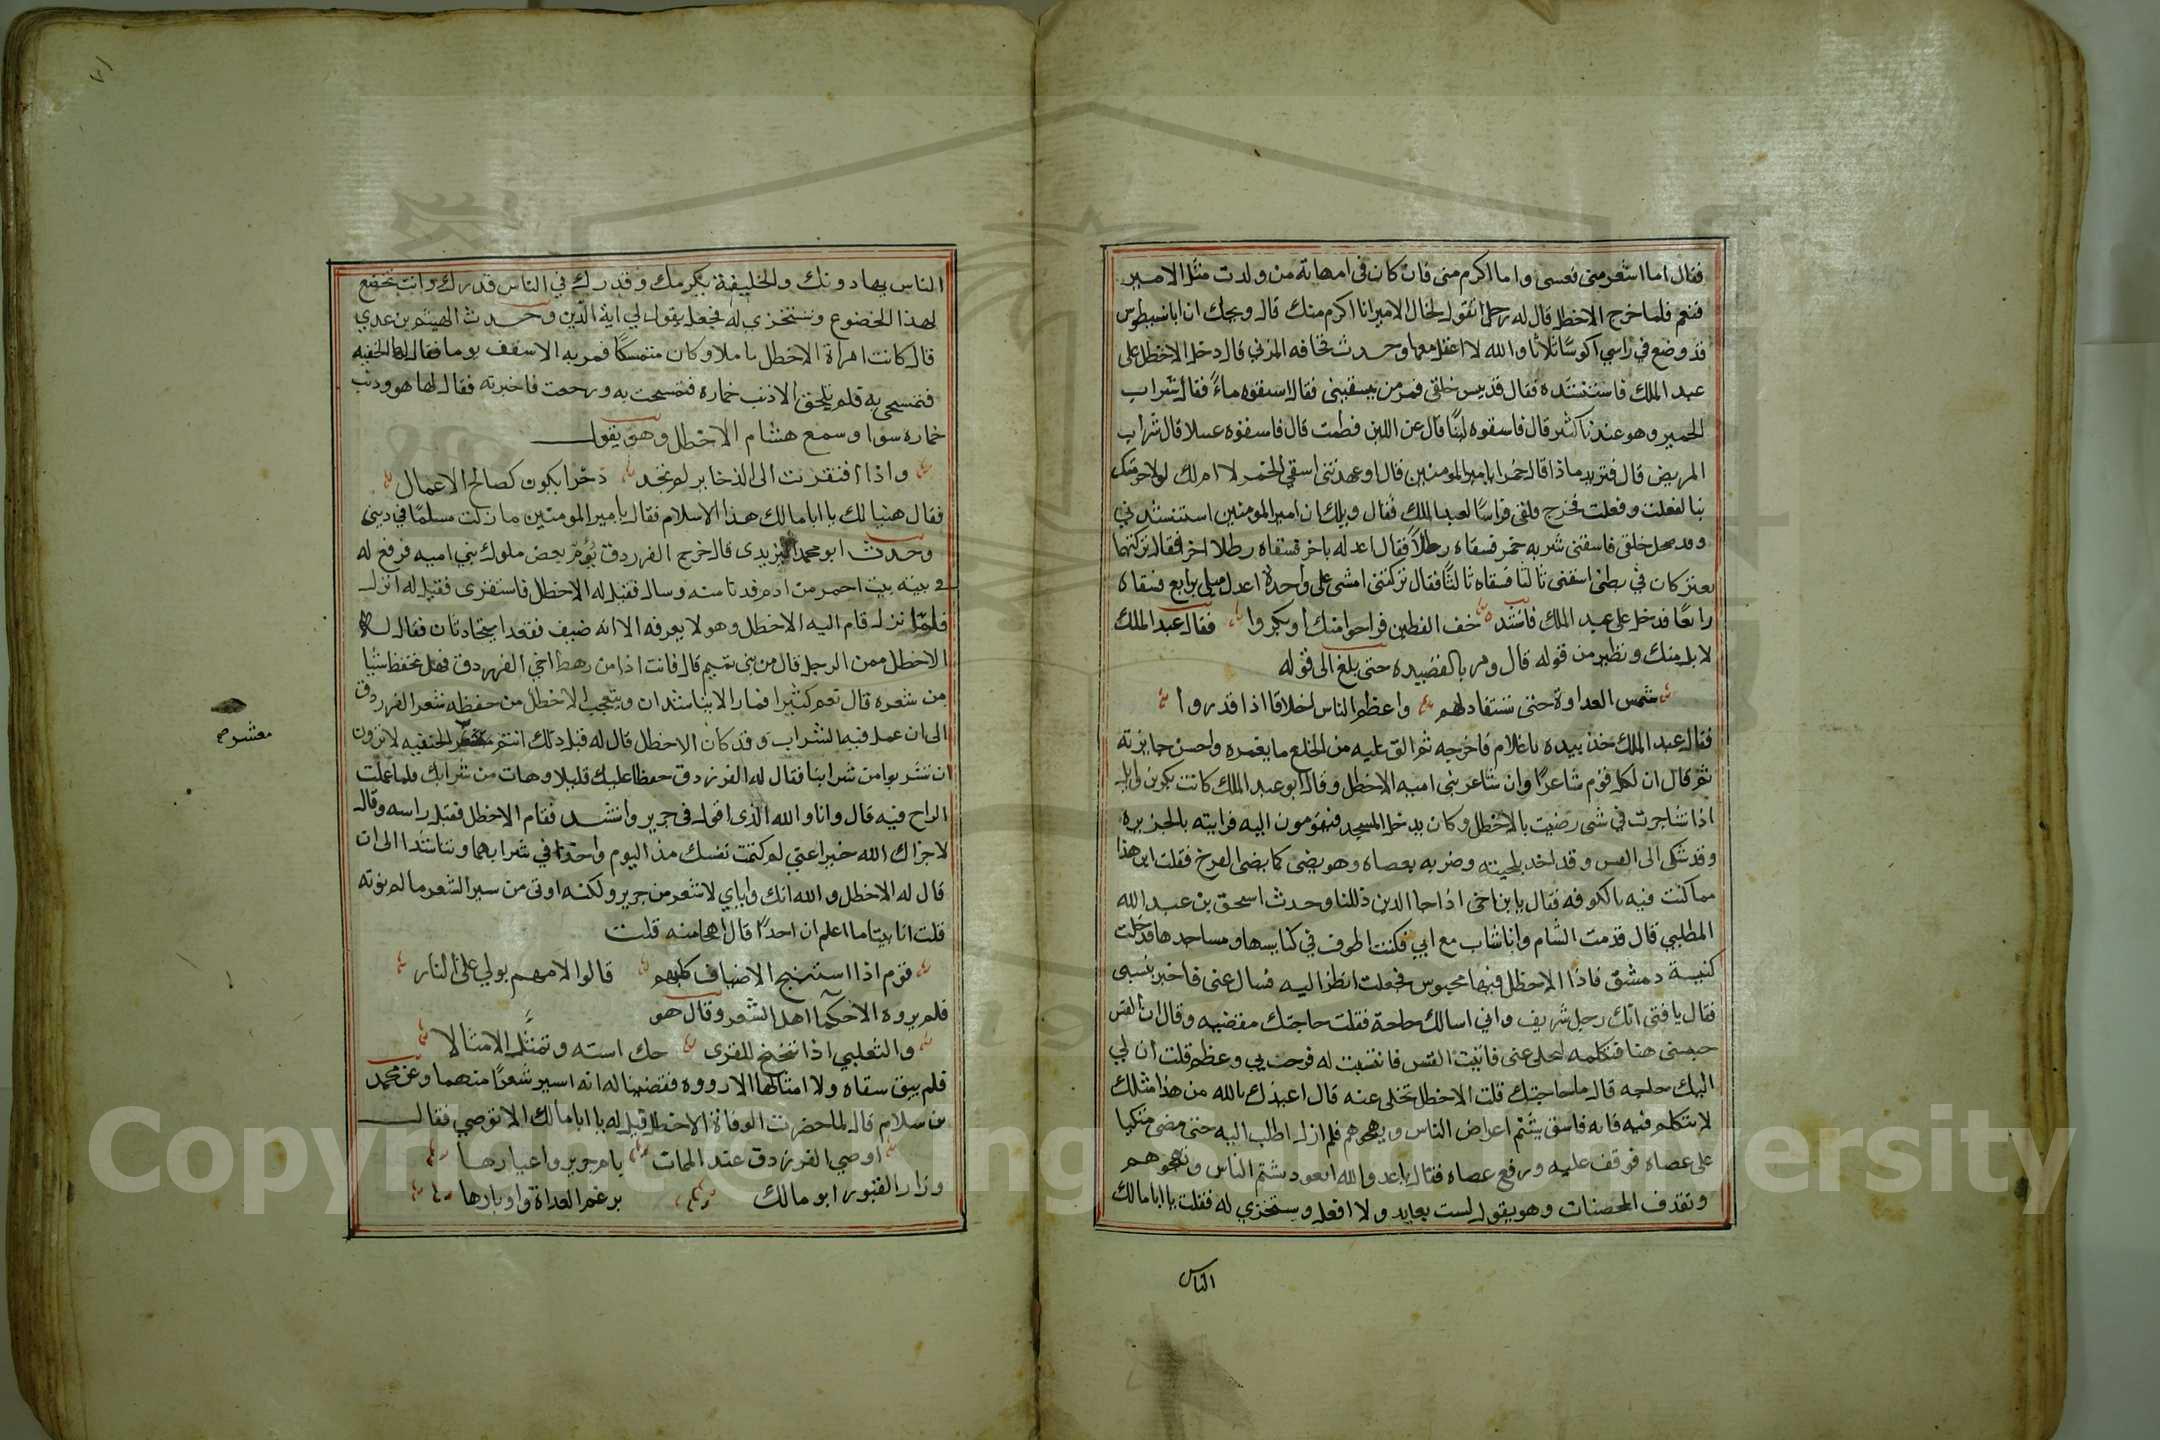 فقال اما اشعر مني فعسى واما اكرم مني فان كان في امهاته من ولدت مثل الامير
فنعم فلما خرج الاخطل قال له رجل اتقول لخال الامير انا اكرم منك قال ويحك ان ابا نسطوس
قد وضع في راسي اكوسًا ثلاثا والله لا اعقل معها وحدث قحافه المزني قال دخل الاخطل على
عبد الملك فاستنشده فقال قد يبس حلقي فمر من يسقيني فقال اسقوه ماءً فقال شراب
الحمير وهو عندنا كثير قال فاسقوه لبنًا قال عن اللبن فطمت قال فاسقوه عسلا قال شراب
المريض قال فتريد ماذا قال خمرا يا امير المومنين قال او عهدتني اسقي الخمر لا ام لك لولا حرمتك
بنا لفعلت وفعلت فخرج فلقي فراسًا لعبد الملك فقال ويلك ان امير المومنين استنشدني
وقد صحل حلقي فاسقني شربه خمر فسقاه رطلاً فقال اعدله باخر فسقاه رطلا اخر فقال تركتهما
يعتركان في بطني اسقني ثالثا فسقاه ثالثًا فقال تركتني امشي على واحدة اعدل ميلي برابع فسقاه
رابعًا فدخل على عبد الملك فانشده خف القطين فراحوا منك او بكروا فقال عبد الملك
لا بل منك وتطير من قوله قال ومر بالقصيده حتى بلغ الى قوله
شمس العداوة حتى تستقاد لهم واعظم الناس احلاقا اذا قدروا
فقال عبد الملك خذ بيده يا غلام فاخرجه ثم الق عليه من الخلع ما يغمره واحسن جايزته
ثم قال ان لكل قوم شاعرًا وان شاعر بني اميه الاخطل وقال ابو عبد الملك كانت بكر بن وايل
اذا تشاجرت في شي رضيت بالاخطل وكان يدخل المسجد فيقومون اليه فرايته بالجزيره
وقد شكي الى القس وقد اخد بلحيته وضربه بعصاه وهو يضي كما يضي الفرخ فقلت اين هذا
مما كنت فيه بالكوفه فقال يا بن اخي اذا جا الدين ذللنا وحدث اسحق بن عبد الله
المطلبي قال قدمت الشام وانا شاب مع ابي فكنت اطوف في كنايسها ومساجدها فدخلت
كنيسة دمشق فاذا الاخطل فيها محبوس فجعلت انظر اليه فسال عني فاخبر بنسبي
فقال يا فتى انك رجل شريف واني اسالك حاجة فقلت حاجتك مقضيه وقال ان القس
حبسني هنا فتكلمه ليخلي عني فاتيت القس فانتسبت له فرحب بي وعظم قلت ان لي
اليك حاجه قال ما حاجتك قلت الاخطل تخلي عنه قال اعيذك بالله من هذا مثلك
لا يتكلم فيه فانه فاسق يشتم اعراض الناس ويهجوهم فلم ازل اطلب اليه حتى مضى متكيا
على عصاه فوقف عليه ورفع عصاه فقال يا عدو الله اتعود تشتم الناس وتهجوهم
وتقذف المحصنات وهو يقول لست بعايد ولا افعل ويستخزي له فقلت يا ابا مالك
الناس
الناس يهادونك والخليفة يكرمك وقدرك في الناس قدرك وانت تخضع
لهذا الخضوع وتستخزي له فجعل يقول لي اية الدين وحدث الهيثم بن عدي
قال كانت امراة الاخطل حاملا وكان متمسكًا فمر به الاسقف يوما فقال لها الحقيه
فتمسحي به فلم يلحق الا ذنب حماره فتمسحت به ورجعت فاخبرته فقال لها هو وذنب
حماره سوا وسمع هشام الاخطل وهو يقول
واذا افتقرت الى الذخاير لم تجد ذخرا يكون كصالح الاعمال
فقال هنيا لك يا ابا مالك هذا الاسلام فقال يا امير المومنين ما زلت مسلمًا في ديني
وحدث ابو محمد اليزيدي قال خرج الفرزدق يوم بعض ملوك بني اميه فرفع له
في بيته بيت احمر من ادم فدنا منه وسال فقيل له الاخطل فاستقرى فقيل له انزل
فلما نزل قام اليه الاخطل وهو لا يعرفه الا انه ضيف فقعدا يتحادثان فقال له
الاخطل ممن الرجل قال من بني تميم قال فانت اذا من رهط اخي الفرزدق فهل تحفظ شيا
من شعره قال نعم كثيرا فما زالا يتناشدان ويتعجب الاخطل من حفظه شعر الفرزدق
الى ان عمل فيه الشراب وقد كان الاخطل قال له قبل ذلك انتم معشر الحنفيه لا ترون
معشر صح
ان تشربوا من شرابنا فقال له الفرزدق خفض عليك قليلا وهات من شرابك فلما عملت
الراح فيه قال وانا والله الذي اقول في جرير وانشد فقام الاخطل فقبل راسه وقال
لا جزاك الله خيرا عني لم كتمت نفسك مذ اليوم واخذا في شرابهما وتناشدا الى ان
قال له الاخطل والله انك واياي لاشعر من جرير ولكنه اوتي من سير الشعر ما لم نوته
قلت انا بيتا ما اعلم ان احدًا قال اهجا منه قلت
قوم اذا استنبح الاضياف كلبهم قالوا لامهم بولي على النار
فلم يروه الا حكما اهل الشعر وقال هو
والتغلبي اذا تنحنح للقرى حك استه وتمثل الامثالا
فلم يبق سقاه ولا امثالها الا رووه فقضينا له انه اسير شعرًا منهما وعن محمد
بن سلام قال لما حضرت الوفاة الاخطل قيل له يا ابا مالك الا توصي فقال
اوصي الفرزدق عند الممات بام جرير واعيارها
وزار القبور ابو مالك برغم العداة واوتارها